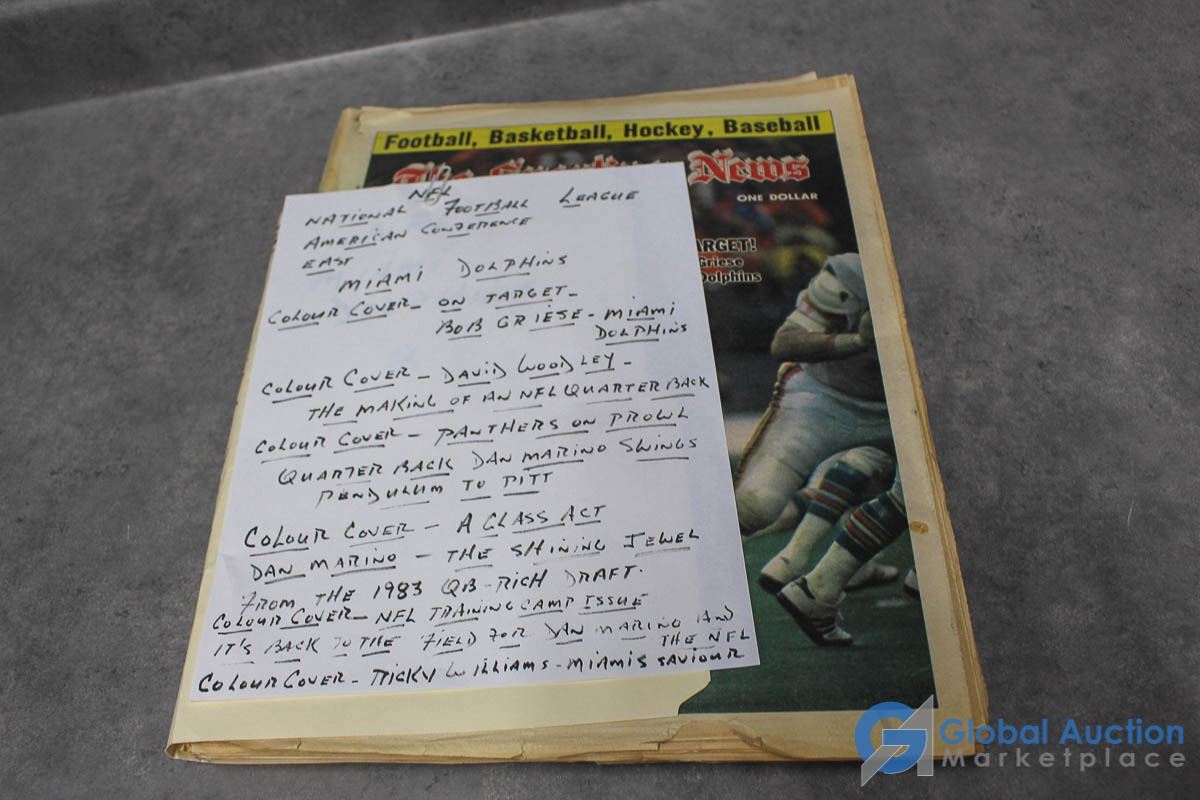 Football, Basketball, Hockey, Baseball
The News
ONE DOLLAR
ARGET!
Griese
Dolphins
NFL
NATIONAL FOOTBALL LEAGUE
AMERICAN CONFERENCE
EAST
MIAMI DOLPHINS
COLOUR COVER - ON TARGET -
BOB GRIESE - MIAMI
DOLPHINS
COLOUR COVER - DAVID WOODLEY -
THE MAKING OF AN NFL QUARTER BACK
COLOUR COVER - PANTHERS ON PROWL
QUARTER BACK DAN MARINO SWINGS
PENDULUM TO PITT
COLOUR COVER - A CLASS ACT
DAN MARINO - THE SHINING JEWEL
FROM THE 1983 QB-RICH DRAFT.
COLOUR COVER - NFL TRAINING CAMP ISSUE
IT'S BACK TO THE FIELD FOR DAN MARINO AND
THE NFL
COLOUR COVER - RICKY WILLIAMS - MIAMIS SAVIOUR
Global Auction
Marketplace